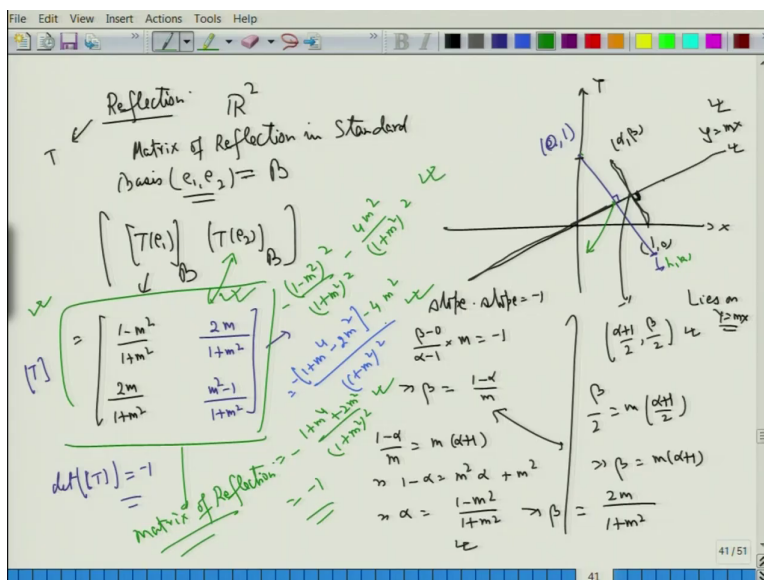 File Edit View Insert Actions Tools Help
Reflection. ℝ²
T
Matrix of Reflection in Standard
Basis (e₁, e₂) = B
[ [T(e₁)]_B [T(e₂)]_B ]
[T] = [ (1-m²)/(1+m²) 2m/(1+m²)
2m/(1+m²) (m²-1)/(1+m²) ]
det([T]) = -1
matrix of Reflection
-(1-m²)²/(1+m²)² - 4m²/(1+m²)²
= (-[1+m⁴-2m²]-4m²)/(1+m²)²
= -(1+m⁴+2m²)/(1+m²)²
= -1
Y
(0,1)
(α,β)
y=mx
x
(1,0)
(h,k)
slope . slope = -1
(β-0)/(α-1) × m = -1
⇒ β = (1-α)/m
(1-α)/m = m(α+1)
⇒ 1-α = m²α + m²
⇒ α = (1-m²)/(1+m²)
Lies on
y=mx
((α+1)/2, β/2)
β/2 = m((α+1)/2)
⇒ β = m(α+1)
⇒ β = 2m/(1+m²)
41/51
41